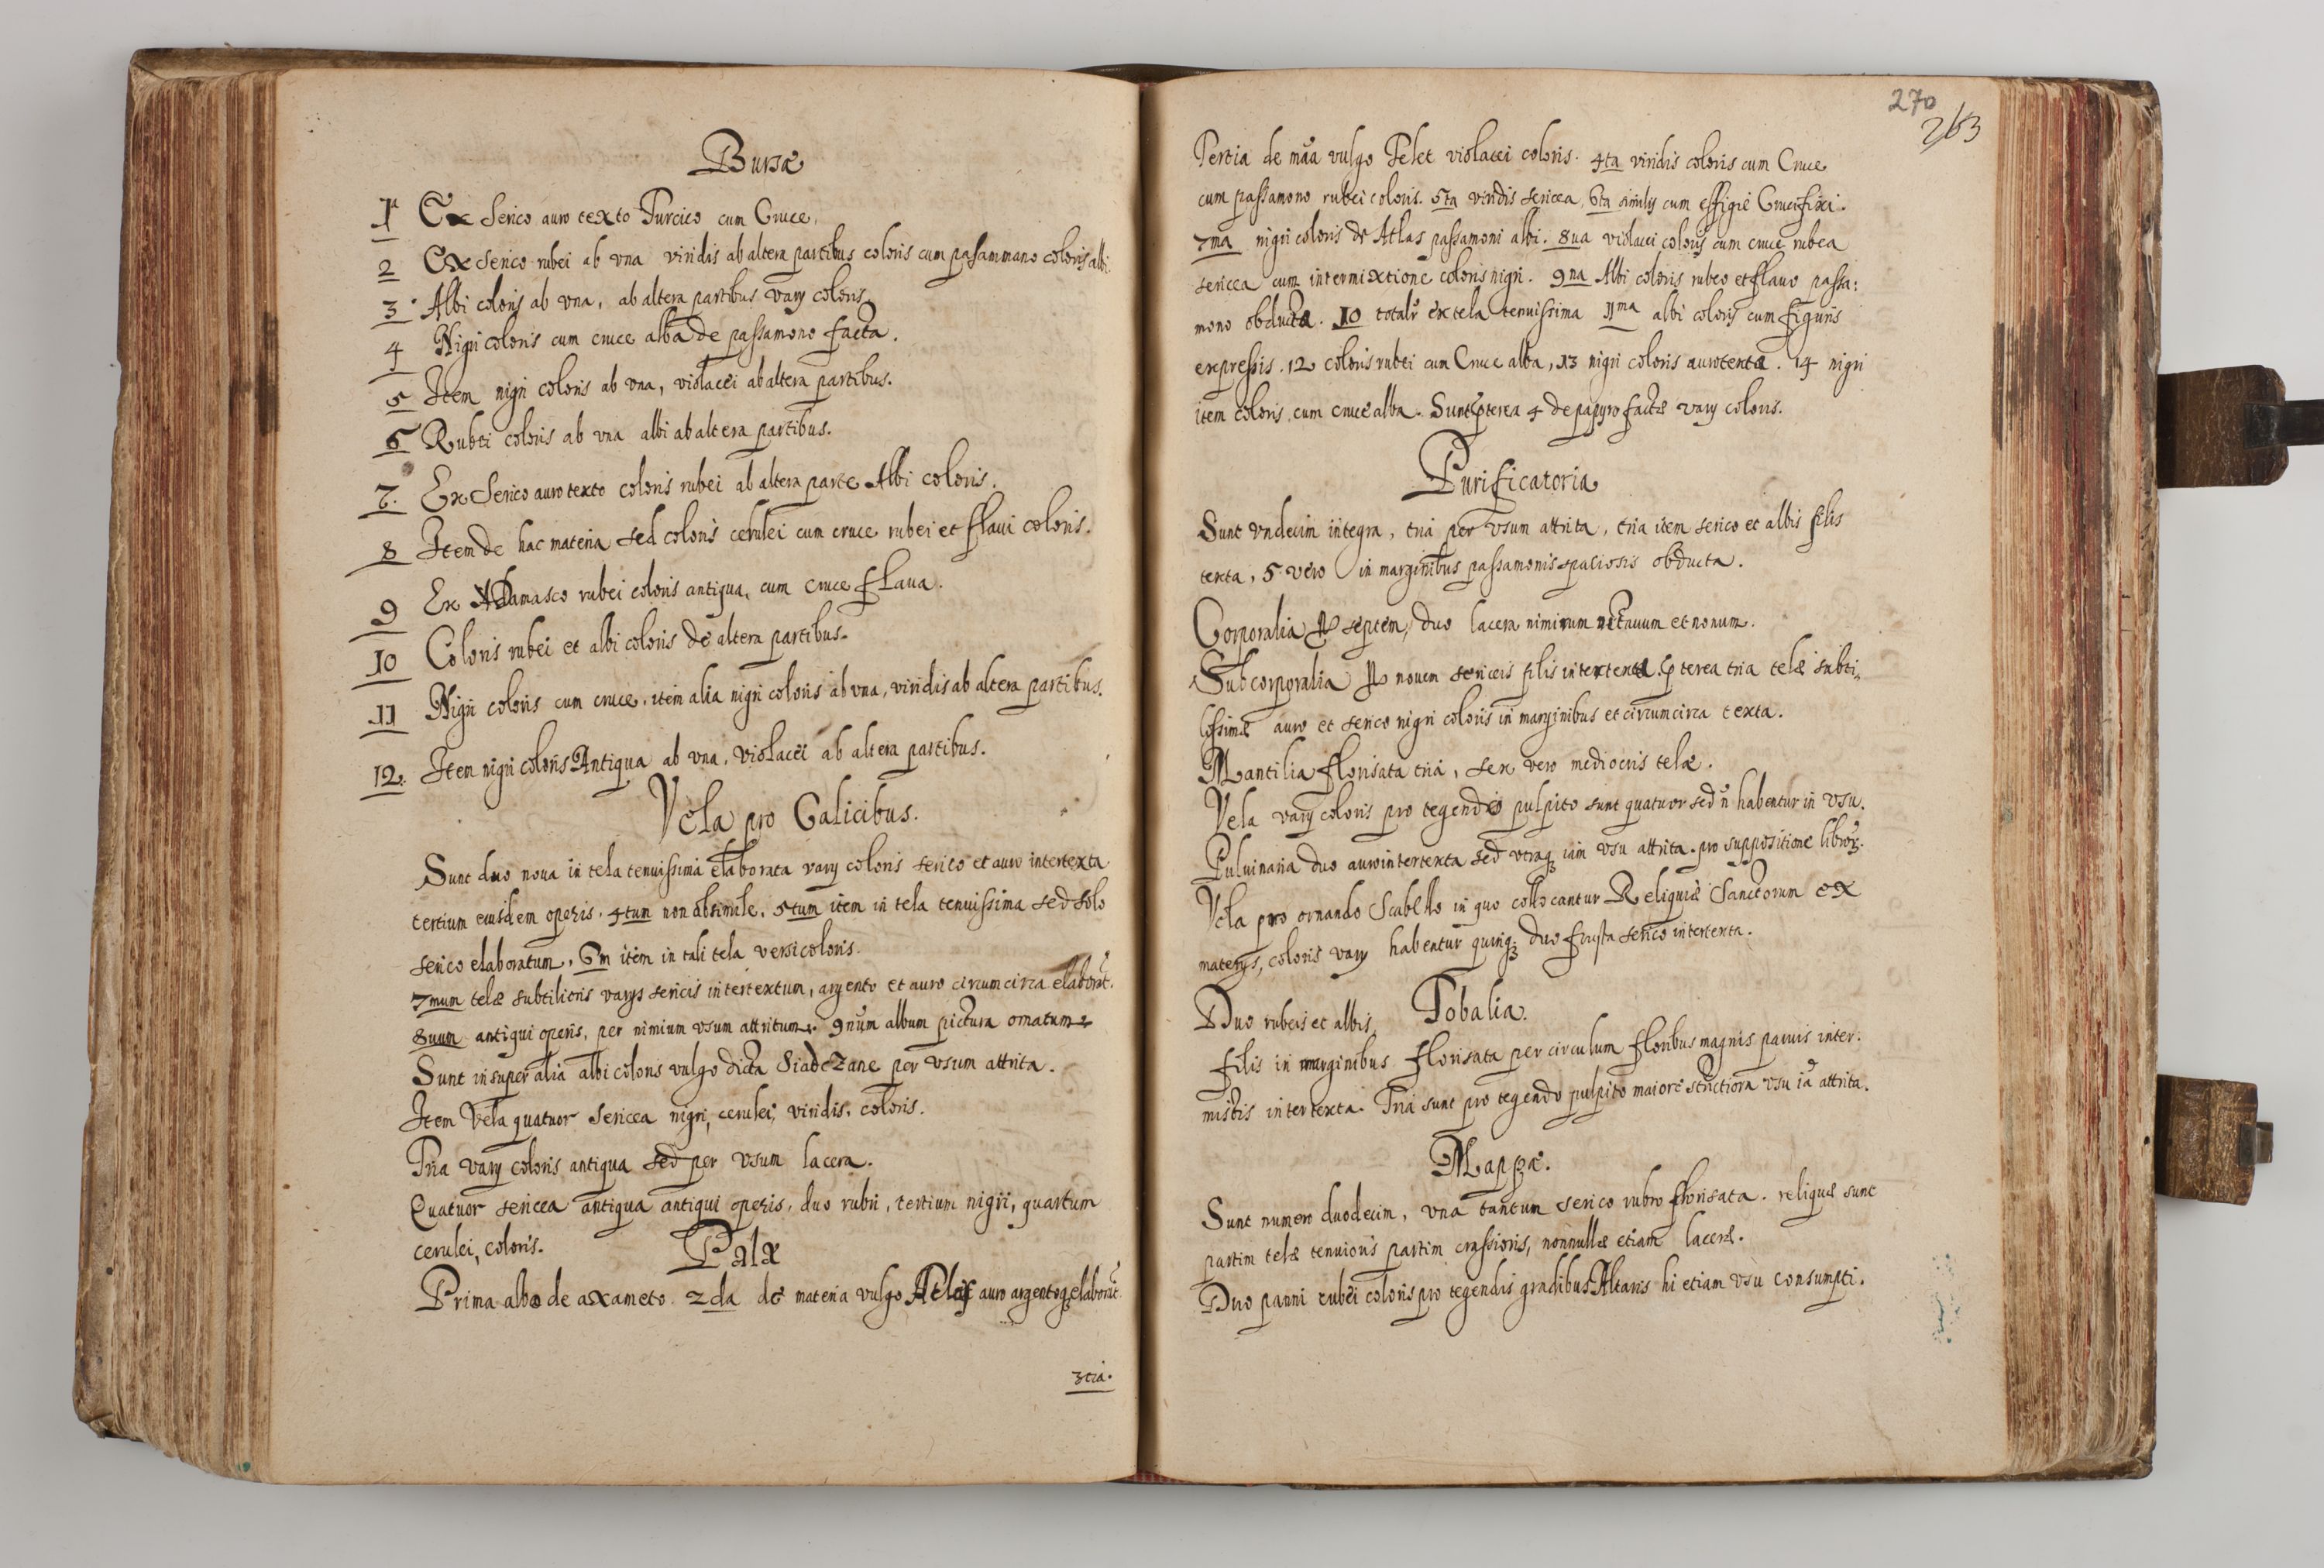 Bursæ
1 Ex Serico auro texto Turcico cum Cruce.
2 Ex Serico rubei ab vna viridis ab altera partibus coloris cum passammano coloris albi.
3 Albi coloris ab vna, ab altera partibus varij coloris.
4 Nigri coloris cum cruce alba de passamono facta.
5 Item nigri coloris ab vna, violacei ab altera partibus.
6 Rubei coloris ab vna albi ab altera partibus.
7. Ex Serico auro texto coloris rubei ab altera parte Albi coloris.
8 Item de hac materia sed coloris cerulei cum cruce rubei et flaui coloris.
9 Ex Adamasco rubei coloris antiqua, cum cruce flaua.
10 Coloris rubei et albi coloris de altera partibus.
11 Nigri coloris cum cruce, item alia nigri coloris ab vna, viridis ab altera partibus.
12. Item nigri coloris Antiqua ab vna, violacei ab altera partibus.
Vela pro Calicibus.
Sunt duo noua in tela tenuissima elaborata varij coloris serico et auro intertexta
tertium eiusdem operis. 4tum non absimile. 5tum item in tela tenuissima sed solo
serico elaboratum. 6m item in tali tela versicoloris.
7mum telæ subtilioris varijs sericis intertextum, argento et auro circumcirca elaborat.
8uum antiqui operis, per nimium vsum attritum. 9num album pictura ornatum
Sunt insuper alia albi coloris vulgo dicta Siadczane per vsum attrita.
Item Vela quatuor Sericea nigri, cerulei, viridis, coloris.
Tria varij coloris antiqua sed per vsum lacera.
Quatuor sericea antiqua antiqui operis, duo rubri, tertium nigri, quartum
cerulei, coloris.
Palæ
Prima alba de axameto. 2da de materia vulgo Atlas auro argentoq elaborat.
3tia.
270
263
Tertia de mãa vulgo Telet violacei coloris. 4ta viridis coloris cum Cruce
cum passamono rubei coloris. 5ta viridis sericea, 6ta similis cum effigie Crucifixi.
7ma nigri coloris de Atlas passamoni albi. 8ua violacei coloris cum cruce rubea
sericea cum intermixtione coloris nigri. 9na Albi coloris rubeo et flauo passa:
mono obducta. 10 totalr ex tela tenuissima 11ma albi coloris cum figuris
expressis. 12 coloris rubei cum Cruce alba, 13 nigri coloris auro texta. 14 nigri
item coloris cum cruce alba. Sunt pterea 4 de papyro factæ varij coloris.
Purificatoria
Sunt vndecim integra, tria per vsum attrita, tria item serico et albis filis
texta, 5 vero in marginibus passamonis spaciosis obducta.
Corporalia septem, duo lacera nimirum octauum et nonum.
Subcorporalia nouem sericeis filis intertexta. pterea tria telæ subti
lissimæ auro et serico nigri coloris in marginibus et circumcirca texta.
Mantilia florisata tria, sex vero mediocris telæ.
Vela varij coloris pro tegendo pulpito sunt quatuor sed ñ habentur in vsu.
Puluinaria duo auro intertexta sed vtraq iam vsu attrita. pro suppositione libror.
Vela pro ornando Scabello in quo collocantur Reliquiæ Sanctorum ex
materijs, coloris varij habentur quinq duo frusta serico intertexta.
Tobalia.
Duo rubeis et albis
filis in marginibus florisata per circulum floribus magnis paruis inter:
mistis intertexta. Tria sunt pro tegendo pulpito maiore strictiora vsu iã attrita.
Mappæ.
Sunt numero duodecim, vna tantum serico rubro florisata. reliquæ sunt
partim telæ tenuioris partim crassioris, nonnullæ etiam laceræ.
Duo panni rubei coloris pro tegendis gradibus Altaris hi etiam vsu consumpti.